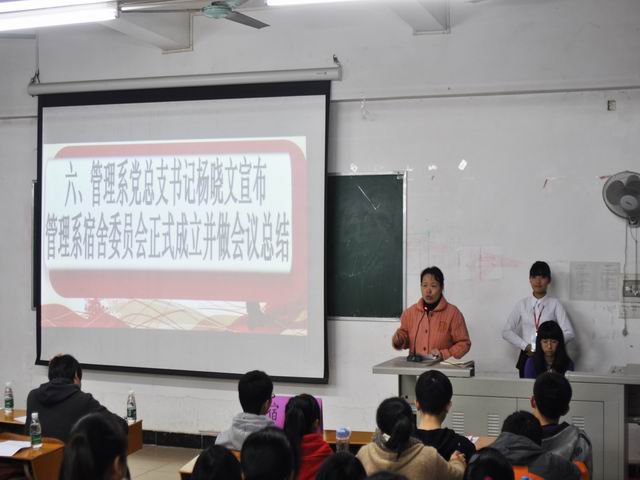 六、管理系党总支书记杨晓文宣布
管理系宿舍委员会正式成立并做会议总结
宿